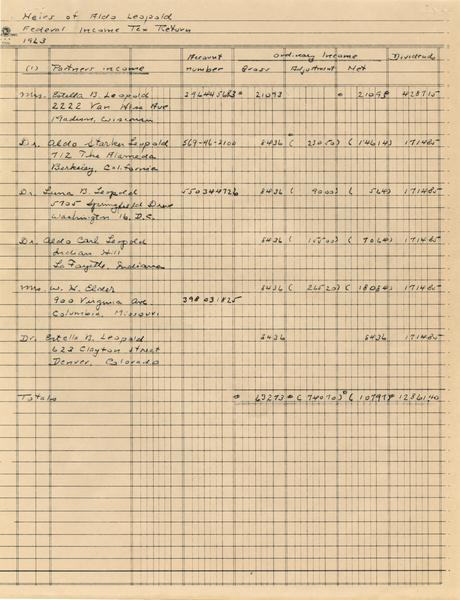 Heirs of Aldo Leopold
Federal Income Tax Return
1963
Account Ordinary Income Dividends
(1) Partners income number Gross Adjustment Net
Mrs. Estella B. Leopold 21093 21093 428715
2222 Van Hise Ave
Madison, Wisconsin
Dr. Aldo Starker Leopold 8436 (23050) (14614) 171485
712 The Alameda
Berkeley, California
Dr. Luna B. Leopold 8436 (9000) (564) 171485
5705 Springfield Drive
Washington 16, D.C.
Dr. Aldo Carl Leopold 8436 (15500) (7064) 171485
Indian Hill
La Fayette, Indiana
Mrs. W. H. Elder 8436 (26520) (18084) 171485
900 Virginia Ave
Columbia, Missouri
Dr. Estella B. Leopold 8436 8436 171485
623 Clayton Street
Denver, Colorado
Totals 63273 (74070) (10797) 1286140